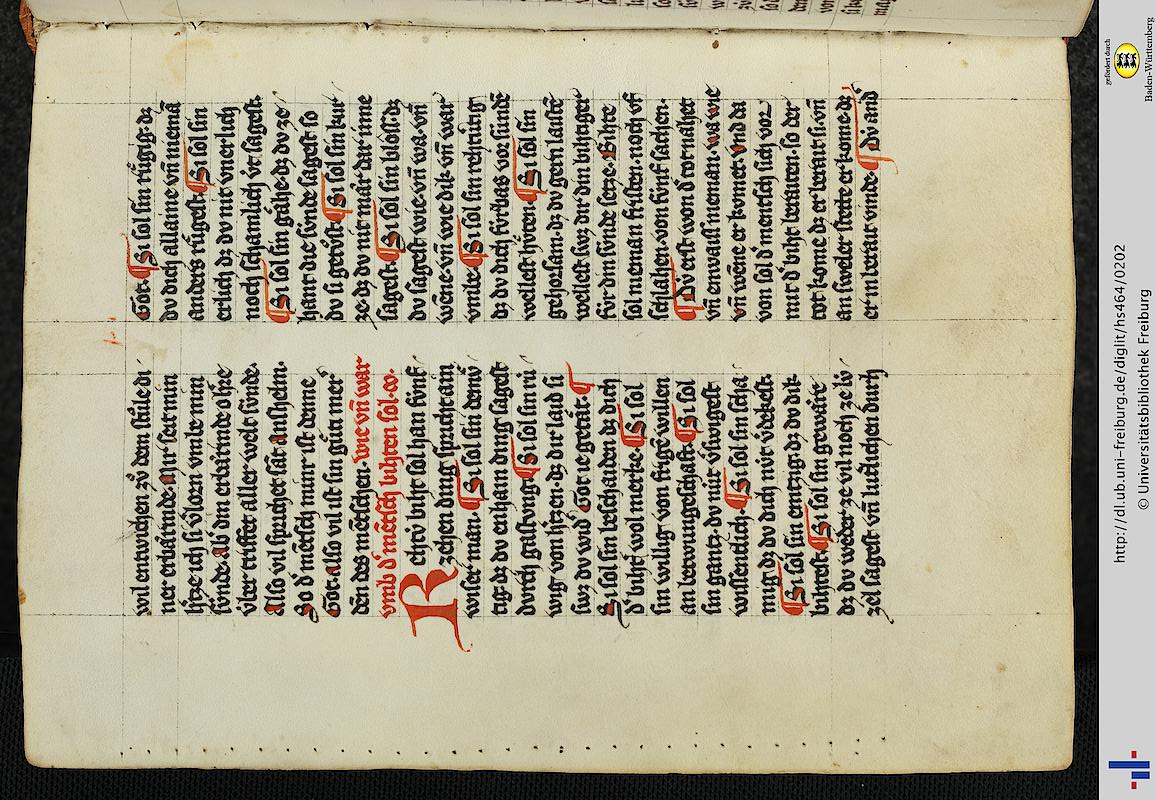 vil entwichen zů dem sůle di
ner erbärmde
hitze ich si vlozn vmbe min
sünde
über trifftet aller welt sünde.
Also vil sprichet sāt Anshelm.
So d' mētsch minr ist denne
Got. also vil ist sin gůti mer
dēn des mētschen. wie vn̄ war
vmb d' mētsch bihten sol. ꝏ.
Rechtv biht sol han fünf
zehen ding sprichtain
wiser man. ¶ Si sol sin
tig. dz dv enhain ding sagest
dvrch gaistvng ¶ Si sol sin rü
wig von hitzen. dz dir laid si
swz dv wid' Got ie getät. ¶
Si sol sin beschaiden dz dich
d' bihter wol merke. ¶ Si sol
sin willig von frigē willen
an betwungeschaft. ¶ Si sol
sin gantz. dv nüt
wissentlich. ¶ Si sol sin scha
mig. dz dv dich nivt v'dekest.
¶ Si sol sin emzig. dz dv dik
bihtost. ¶ Si sol sin gewäre
dz dv weder ze vil noch ze lv
zel sagest vn̄ lutlichen durch
Got. ¶ Si sol sin rügig. dz
dv dich allaine vn̄ niemā
anders rügest. ¶ Si sol sin
erlich dz dv nit vnerlich
noch schamlich vt sagest.
¶ Si sol sin gähe. dz dv ze
hant die sünde sagest so
dv si getůst. ¶ Si sol sin kur
ze. dz dv nüt sät dar inne
sagest. ¶ Si sol sin bloss. dz
dv sagest wie. vn̄ wa. vn̄
wēne. vn̄ wie dik. vn̄ war
vmbe. ¶ Si sol sin rehtvng
dz dv dich fürbas vor sündē
wellest hüten. ¶ Si sol sin
gehorsam. dz dv gern laistē
wellest swz dir din bihtiger
für din sünde setze. Bihte
sol nieman fristen. noch vf
schlahen. von fünf sachen.
¶ Dv erst won d' tot nahet
vn̄ enwaiss nieman. wa. wie
vn̄ wēne er komet vnd da
von sol d' mentsch sich vor
mit d' biht beraiten. so der
tot kome dz er berait si. vn̄
an sweler stette er kome. dz
er in berait vinde. ¶ Dv and'
http://dl.ub.uni-freiburg.de/diglit/hs464/0202
© Universitätsbibliothek Freiburg
gefördert durch
Baden-Württemberg